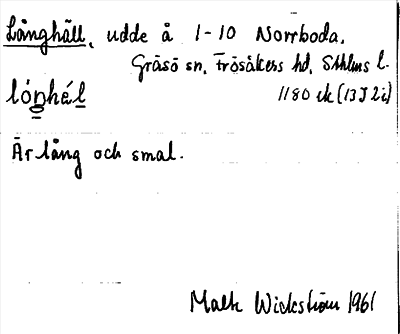 Långhäll, udde å 1-10 Norrboda,
Gräsö sn, Frösåkers hd, Sthlms l.
lóŋhél 1180 ik (13J2i)
Är lång och smal.
Wickström 1961